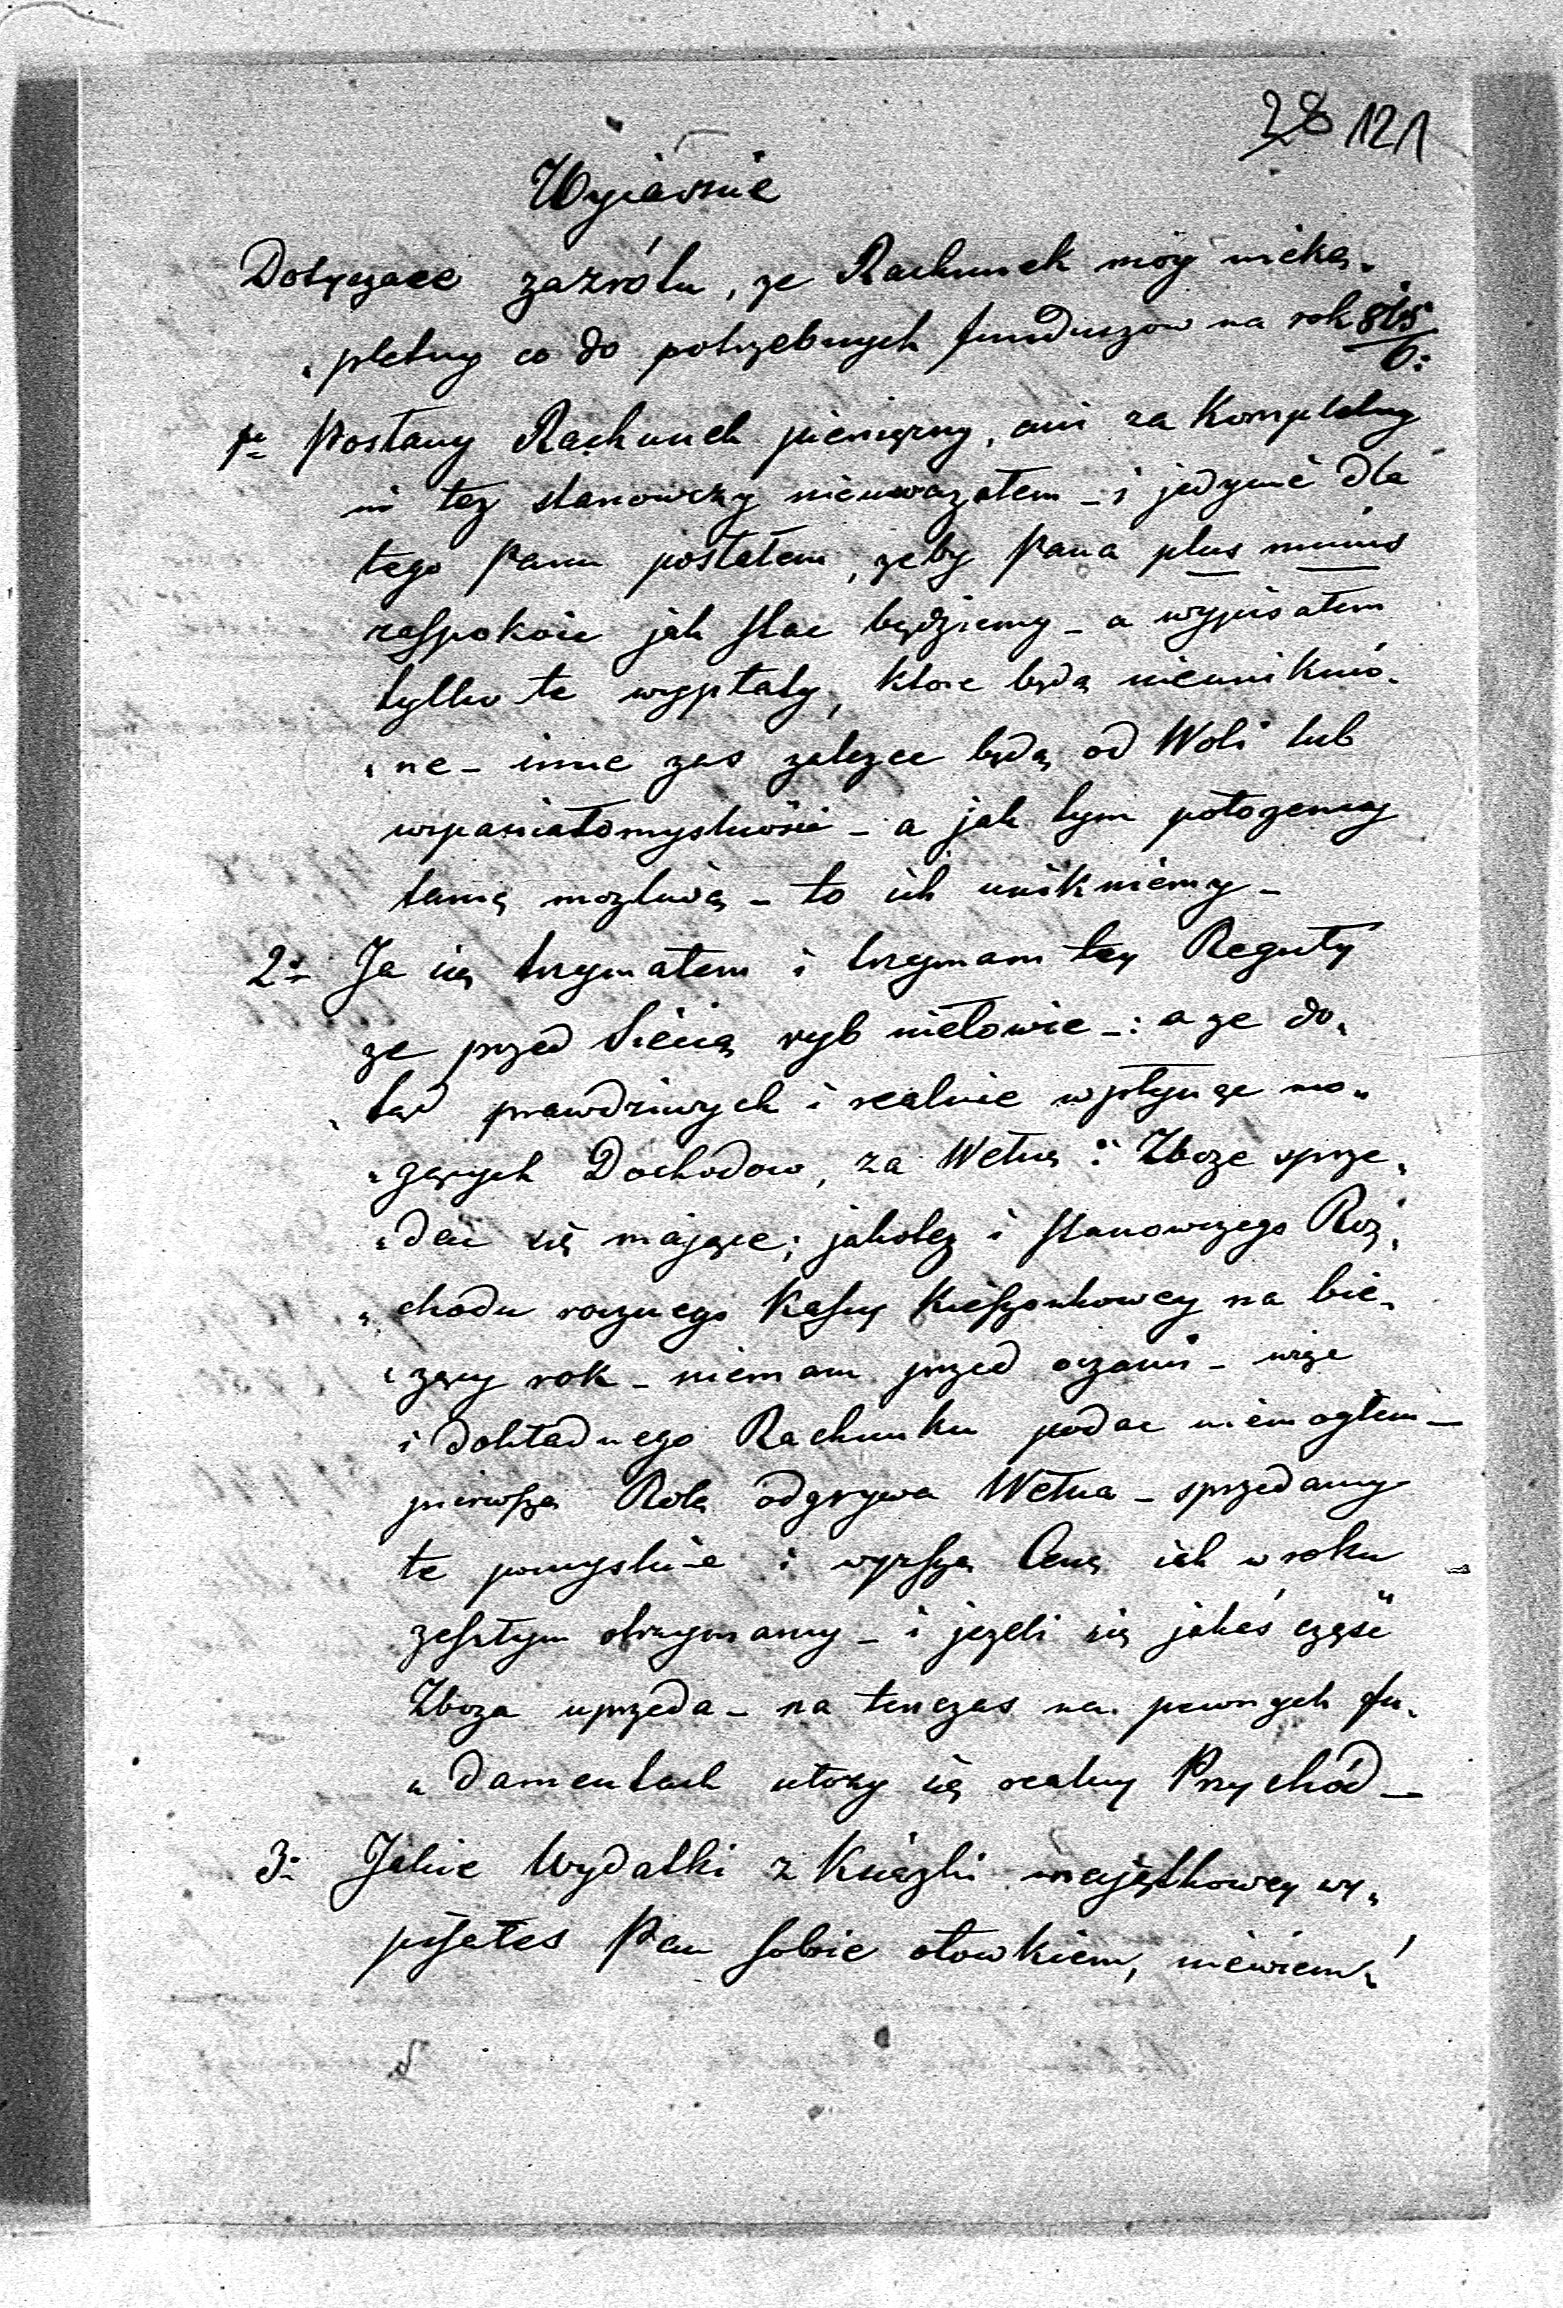 28 121
Wyiaśnie
Dotyczące zarzótu, ze Rachunek moy nieko„
„pletny co do potrzebnych funduszow na rok 815/6:
1o Posłany Rachunek pienięzny, ani za Kompletny
ni tez stanowczy nieuwazałem – i jedynie dla
tego Panu posłałem, zeby Pana plus minus
zaspokoic jak stac będziemy – a wypisałem
tylko te wypłaty, ktore będą nieuniknio„
„ne – inne zas zalezec będą od Woli lub
wspaniałomyslności – a jak tym połozemy
tamą mozliwą – to ich unikniemy –
2o Ja się trzymałem i trzymam tey Reguły
ze przed Siecią ryb niełowie –: a ze do„
„tąd prawdziwych i realnie wpłynąc mo„
„zących Dochodow, za Wełnę i Zboze sprze„
„dac się mające; jakotez i stanowczego Roz„
„chodu rocznego Kassy Kieszonkowey na bie„
„zący rok – niemam przed oczami – więc
i dokładnego Rachunku podac niemogłem –
pierwszą Rolę odgrywa Wełna – sprzedamy
te pomyslnie i wyzszą Cenę jak w roku
zeszłym otrzymamy – i jezeli się jakaś część
Zboza uprzeda – na tenczas na pewnych fu„
„damentach utozy się realny Przychód –
3o Jakie Wydatki z Książki majątkowey wy„
pisałes Pan sobie ołowkiem, niewiem,